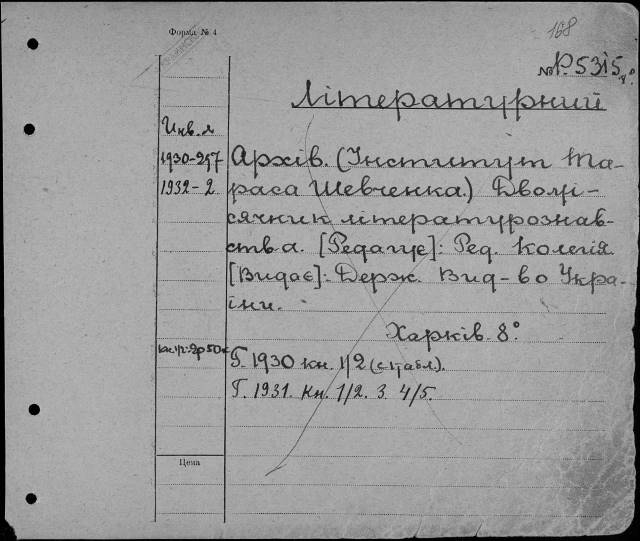 168
Форма № 4
№ Р. 5315
Літературний
Инв. №
1930-297
1932-2
Архів. (Інститут Та-
раса Шевченка.) Двомі-
сячник літературознав-
ства. [Редагує]: Ред. Колегія.
[Видає]: Держ. Вид-во Укра-
їни.
Харків. 8°
Г. 1930 кн. 1/2 (с 1 табл.).
Г. 1931. Кн. 1/2. 3. 4/5.
Цена